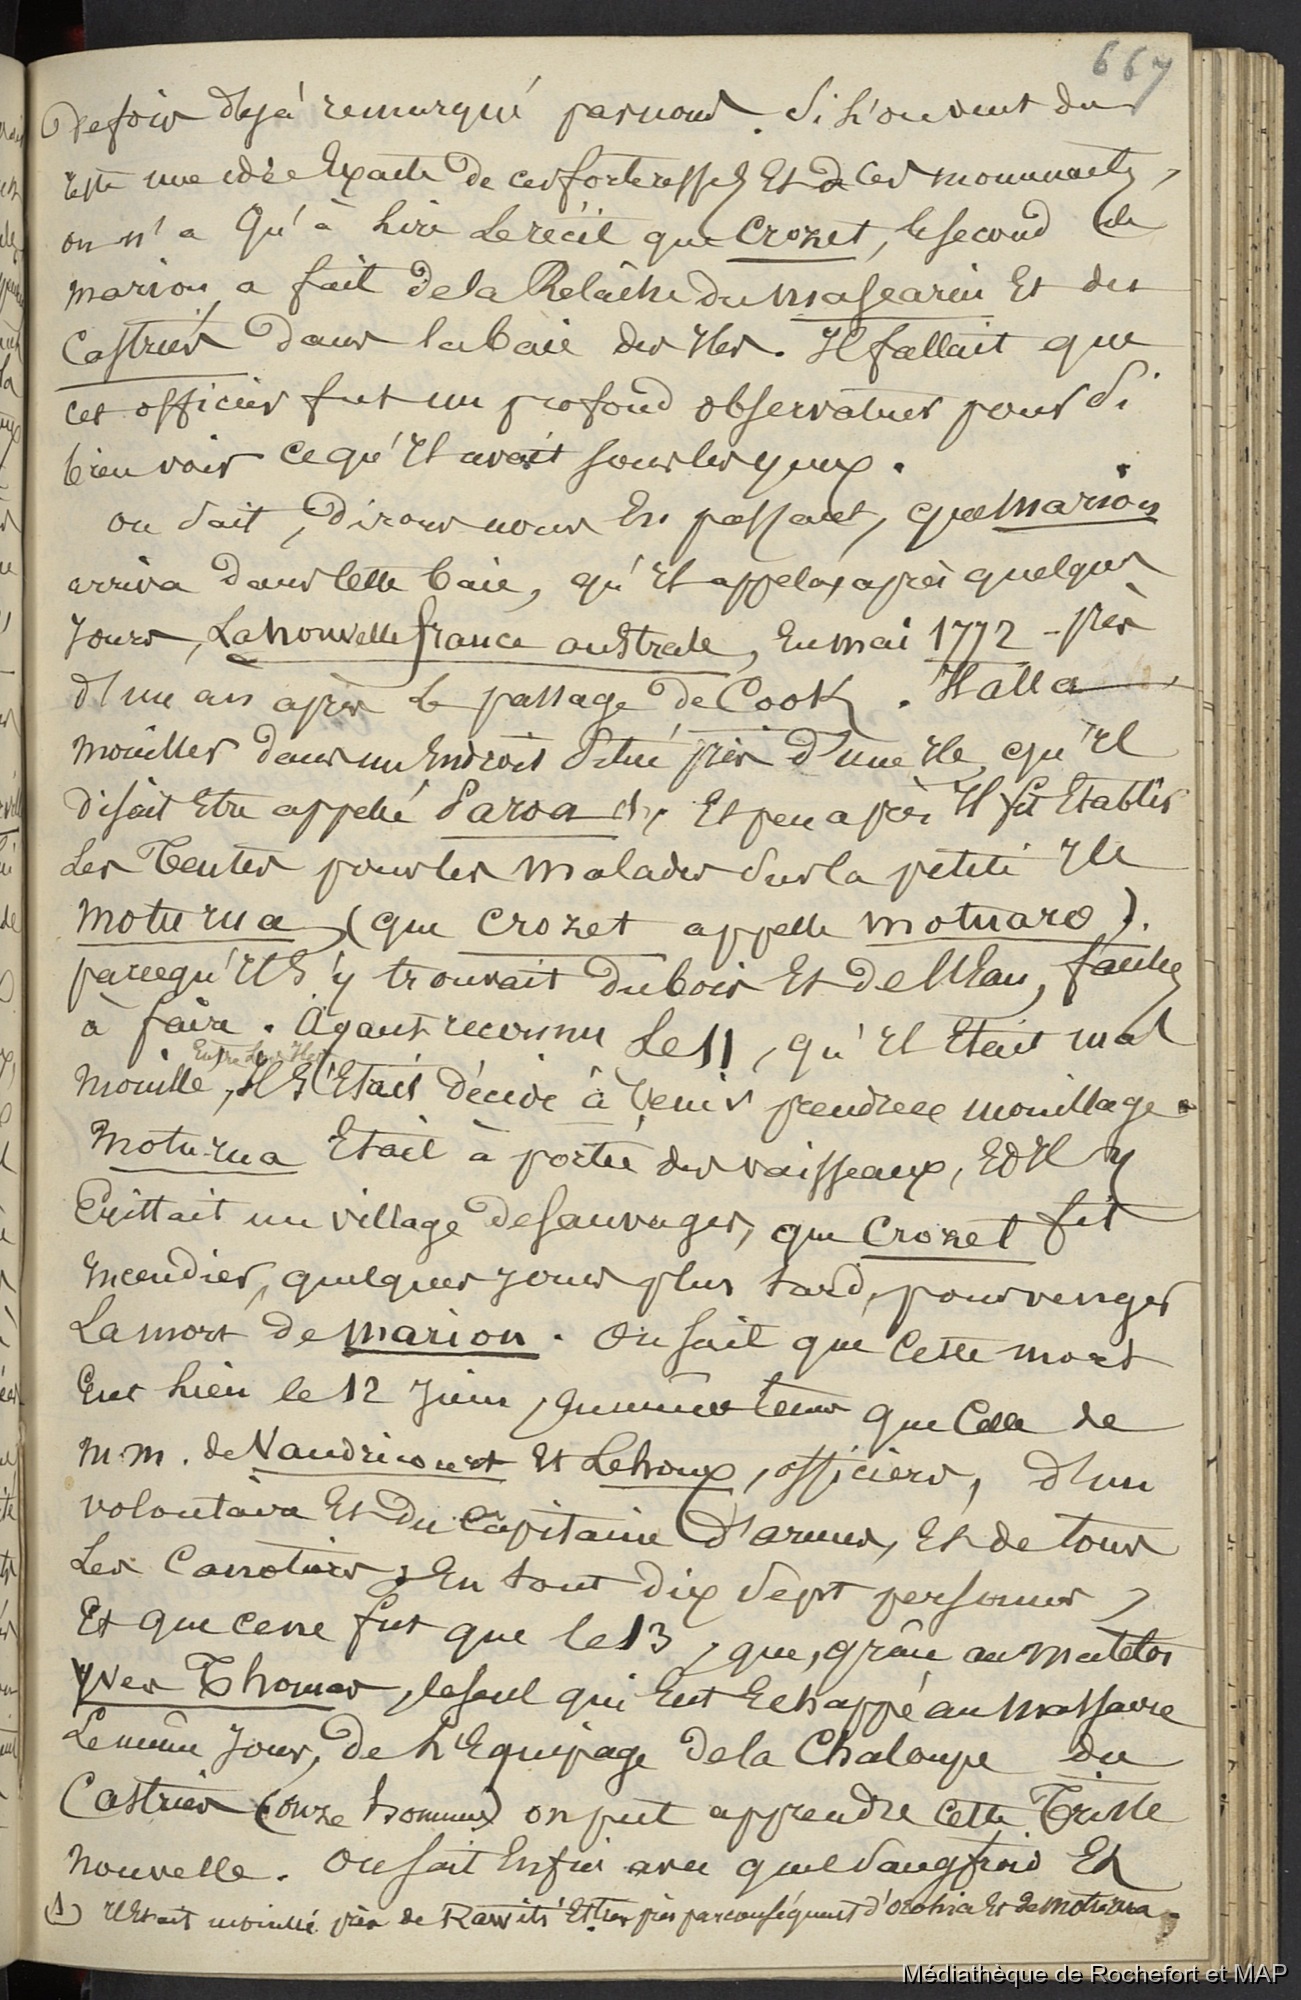 667
defois déjà remarqué par nous. Si l'on veut du
reste une idée Exacte de ces forteresses Et de ces monuments,
on n'a Qu'à Lire Le récit que Crozet, le second de
marion, a fait de la Relâche du mascarin Et du
Castries dans la baie des Iles. Il fallait que
cet officier fut un profond observateur pour si
bien voir ce qu'Il avait sous les yeux.
on sait, dirons nous En passant, que marion
arriva dans Cette baie, qu'Il appela, après quelques
Jours, La nouvelle france australe, En mai 1772 - près
d'un an après le passage de Cook. Il alla
mouiller dans un Endroit situé près d'une Ile, qu'Il
disait Etre appellé Paroa (1), Et peu après Il fit Etablir
Les Tentes pour les malades sur la petite Ile
moturua (que Crozet appelle motuaro).
parcequ'Il s'y trouvait du bois Et de l'Eau, faciles
à faire. Ayant reconnu Le 11, qu'Il Etait mal
Entre Les Iles
mouillé, Il s'Etait décidé à Venir prendre ce mouillage.
Moturua Etait à portée des vaisseaux, Et Il y
Existait un village de sauvages, que Crozet fit
Incendier, quelques jours plus tard, pour venger
La mort de marion. On sait que Cette mort
Eut lieu le 12 Juin, En même tems que Celle de
M.M. de Vaudricourt Et Lehoux, officiers, d'un
volontaire Et du Capitaine d'armes, Et de tous
Les Canotiers; En tout dix sept personnes,
Et que ce ne fut que le 13, que, grâce au matelot
Yves Thomas, le seul qui Eut Echappé au massacre
Le même Jour, de L'Equipage de la Chaloupe du
Castries (onze hommes) on put apprendre cette Triste
nouvelle. On sait Enfin avec quel sangfroid Et
(1) Il Etait mouillé près de Rawiti Et très près par conséquent d'orokia Et de moturua.
Médiathèque de Rochefort et MAP